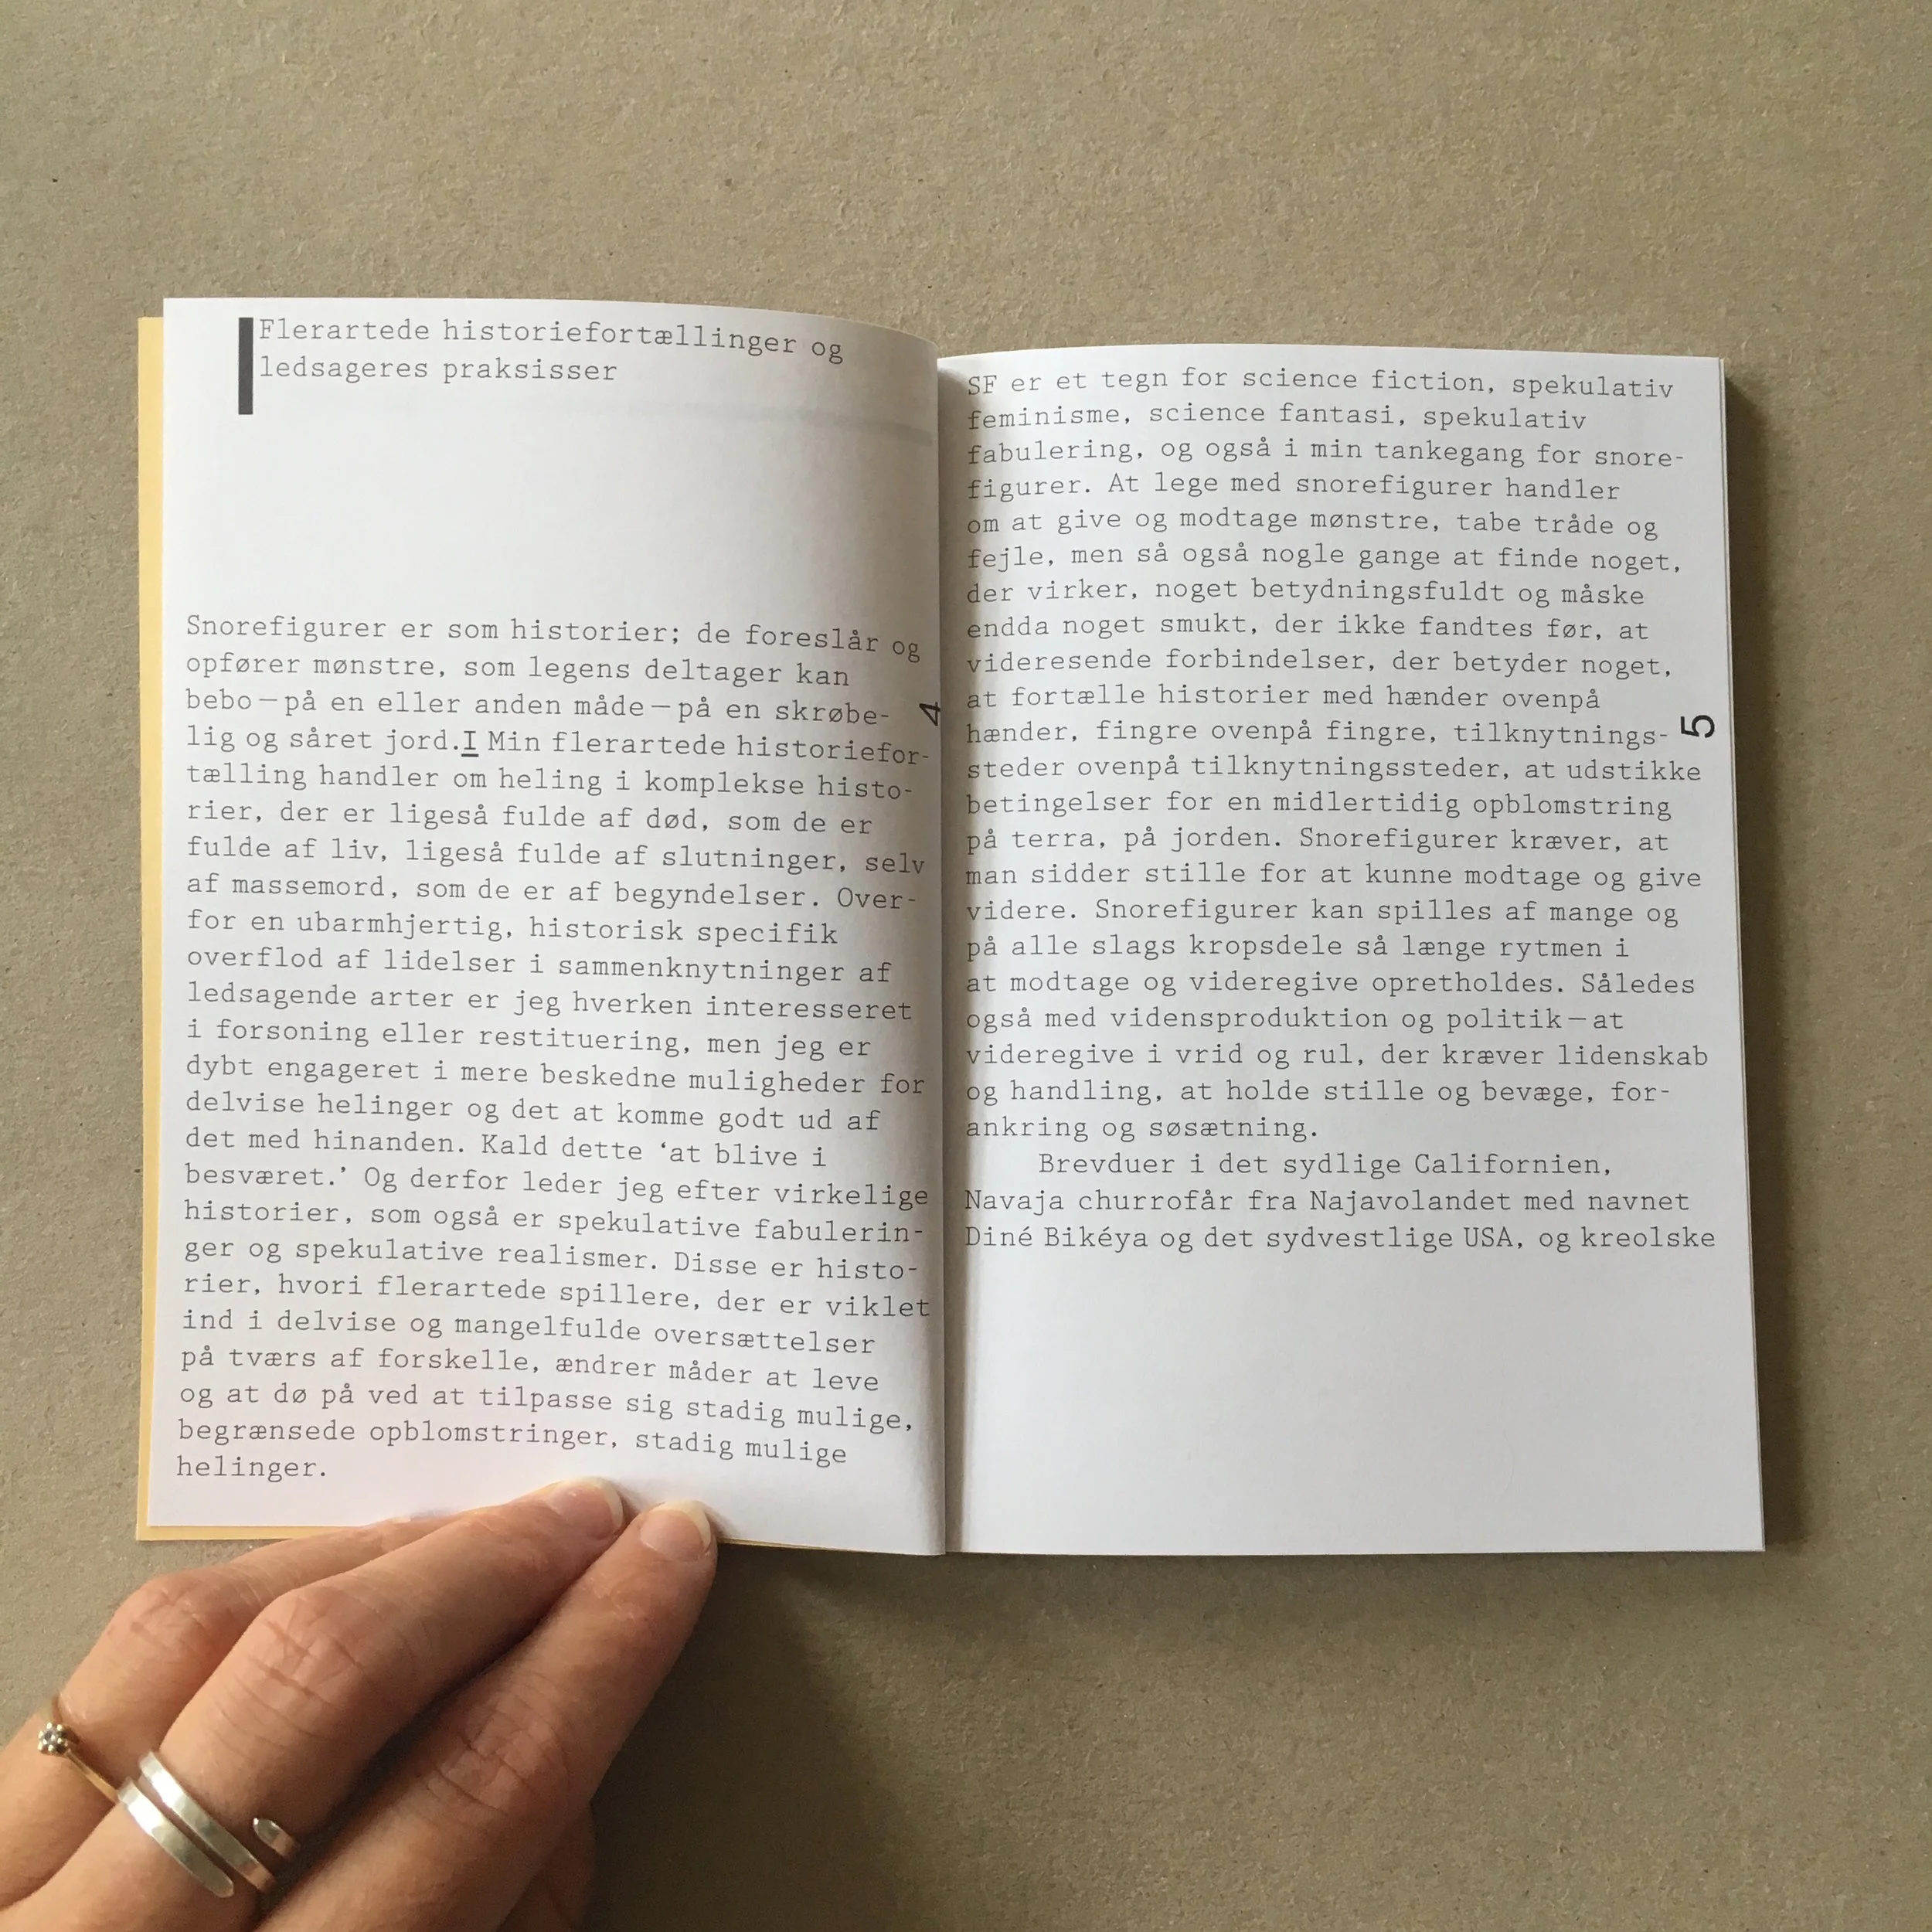 Flerartede historiefortællinger og
ledsageres praksisser
Snorefigurer er som historier; de foreslår og
opfører mønstre, som legens deltager kan
bebo — på en eller anden måde — på en skrøbe-
lig og såret jord.I Min flerartede historiefor-
tælling handler om heling i komplekse histo-
rier, der er ligeså fulde af død, som de er
fulde af liv, ligeså fulde af slutninger, selv
af massemord, som de er af begyndelser. Over-
for en ubarmhjertig, historisk specifik
overflod af lidelser i sammenknytninger af
ledsagende arter er jeg hverken interesseret
i forsoning eller restituering, men jeg er
dybt engageret i mere beskedne muligheder for
delvise helinger og det at komme godt ud af
det med hinanden. Kald dette ‘at blive i
besværet.’ Og derfor leder jeg efter virkelige
historier, som også er spekulative fabulerin-
ger og spekulative realismer. Disse er histo-
rier, hvori flerartede spillere, der er viklet
ind i delvise og mangelfulde oversættelser
på tværs af forskelle, ændrer måder at leve
og at dø på ved at tilpasse sig stadig mulige,
begrænsede opblomstringer, stadig mulige
helinger.
4
SF er et tegn for science fiction, spekulativ
feminisme, science fantasi, spekulativ
fabulering, og også i min tankegang for snore-
figurer. At lege med snorefigurer handler
om at give og modtage mønstre, tabe tråde og
fejle, men så også nogle gange at finde noget,
der virker, noget betydningsfuldt og måske
endda noget smukt, der ikke fandtes før, at
videresende forbindelser, der betyder noget,
at fortælle historier med hænder ovenpå
hænder, fingre ovenpå fingre, tilknytnings-
steder ovenpå tilknytningssteder, at udstikke
betingelser for en midlertidig opblomstring
på terra, på jorden. Snorefigurer kræver, at
man sidder stille for at kunne modtage og give
videre. Snorefigurer kan spilles af mange og
på alle slags kropsdele så længe rytmen i
at modtage og videregive opretholdes. Således
også med vidensproduktion og politik — at
videregive i vrid og rul, der kræver lidenskab
og handling, at holde stille og bevæge, for-
ankring og søsætning.
Brevduer i det sydlige Californien,
Navaja churrofår fra Najavolandet med navnet
Diné Bikéya og det sydvestlige USA, og kreolske
5